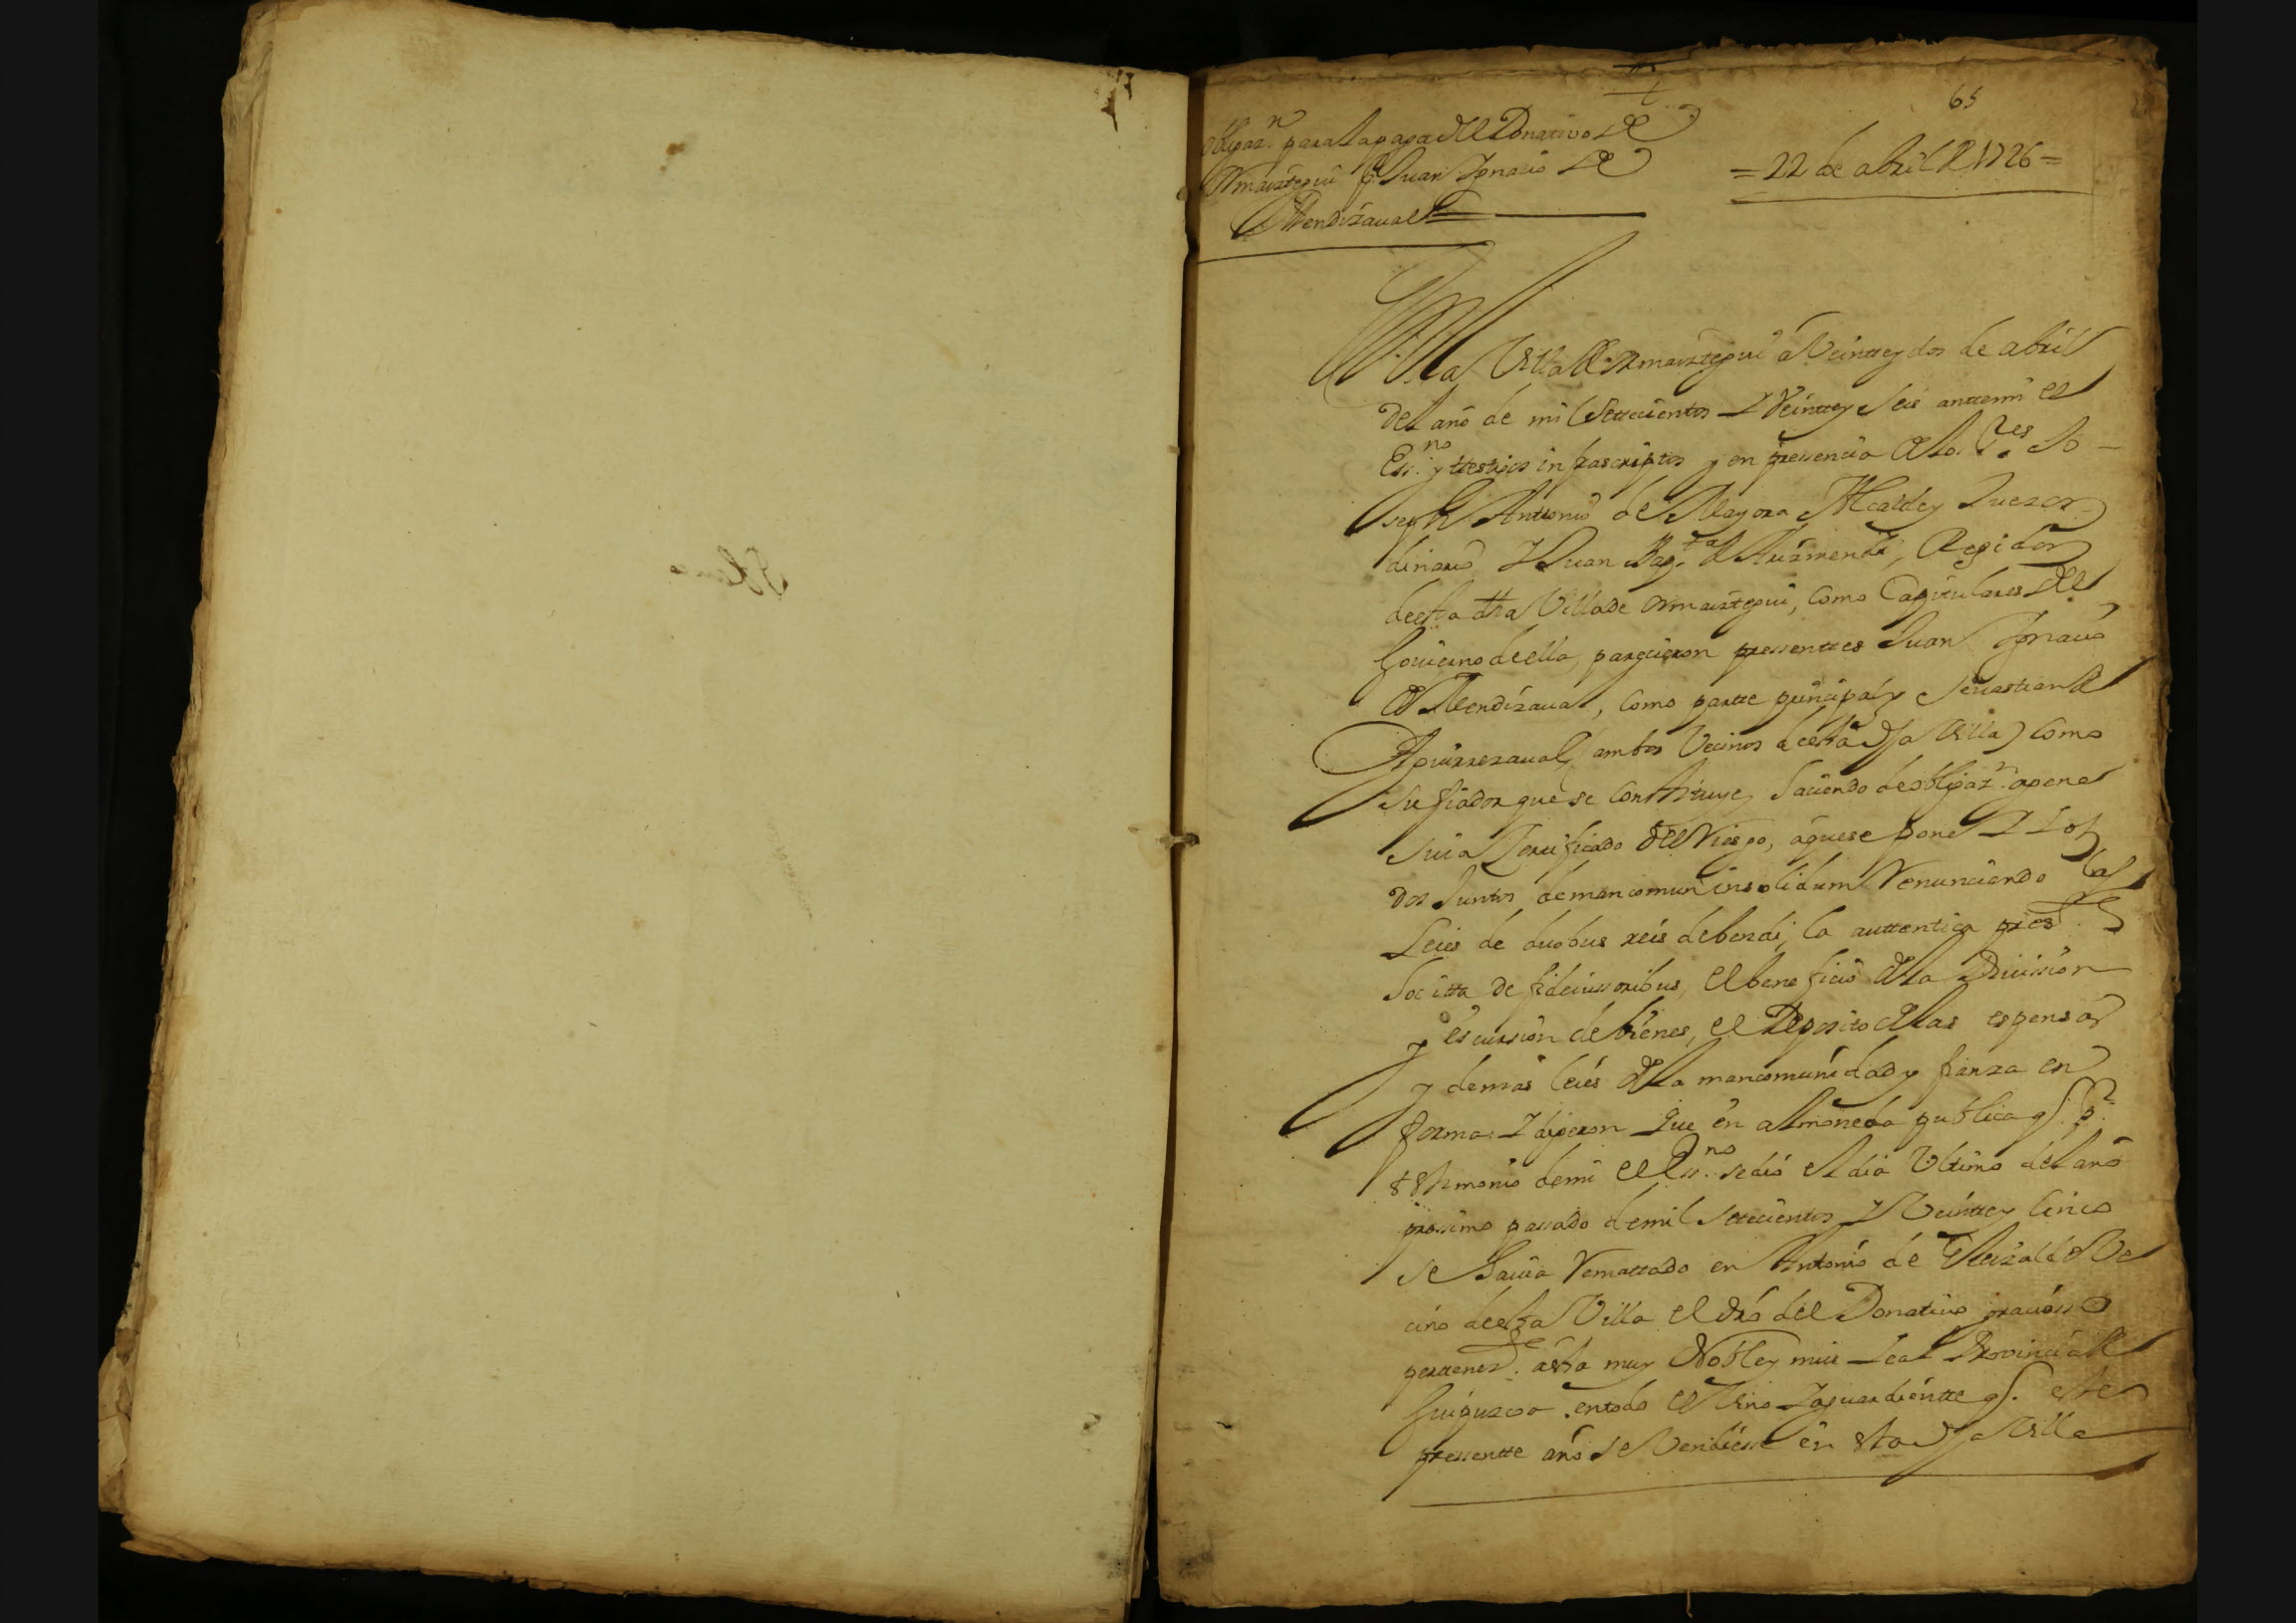 65
obligaz.n para la paga del Donativo de
Ormaiztegui p.r Juan Ignacio de
Mendizaual
= 22 de abril de 1726 =
En la Villa de Ormaiztegui a Veintte y dos de abril
del año de mil Settecientos y Veintte y Seis antte mi el
Ess.no y ttestigos infrascriptos y en pressencia de los S.res Jo-
seph Anttonio de Mayora Alcalde y Juez or-
dinario y Juan Bap.ta de Auzmendi, Regidor
de esta dha Villa de Ormaiztegui, como Capitulares del
Gouierno de ella, parecieron pressenttes Juan Ignacio
de Mendizaual, como partte principal y Seuastian de
Aguirrezaual, (ambos Vecinos de esta dha Villa) como
su fiador que se constituye, haciendo de obligaz.n agena
suia Zertificado del Riesgo, a que se pone Y los
dos Juntos de mancomun insolidum Renunciando las
Leies de duobus reis debendi, la auttentica pres.
hoc itta de fideiussoribus, el beneficio de la Diuission
y escurssion de bienes, el Deposito de las espensas
y demas leies de la mancomunidad y fianza en
forma: Y dijeron Que en almoneda publica q.
testimonio de mi el Ess.no se dió el dia Ultimo del año
proximo passado de mil Settecientos y Veintte y Cinco
se hauia Remattado en Antonio de Ve
cino de esta Villa el dro del Donatiuo graciosso
pertenez.te a esta muy Noble y mui Leal Provincia de
Guipuzcoa en todo el Vino y aguardientte q. este
pressentte año se Vendiesse en esta dha Villa